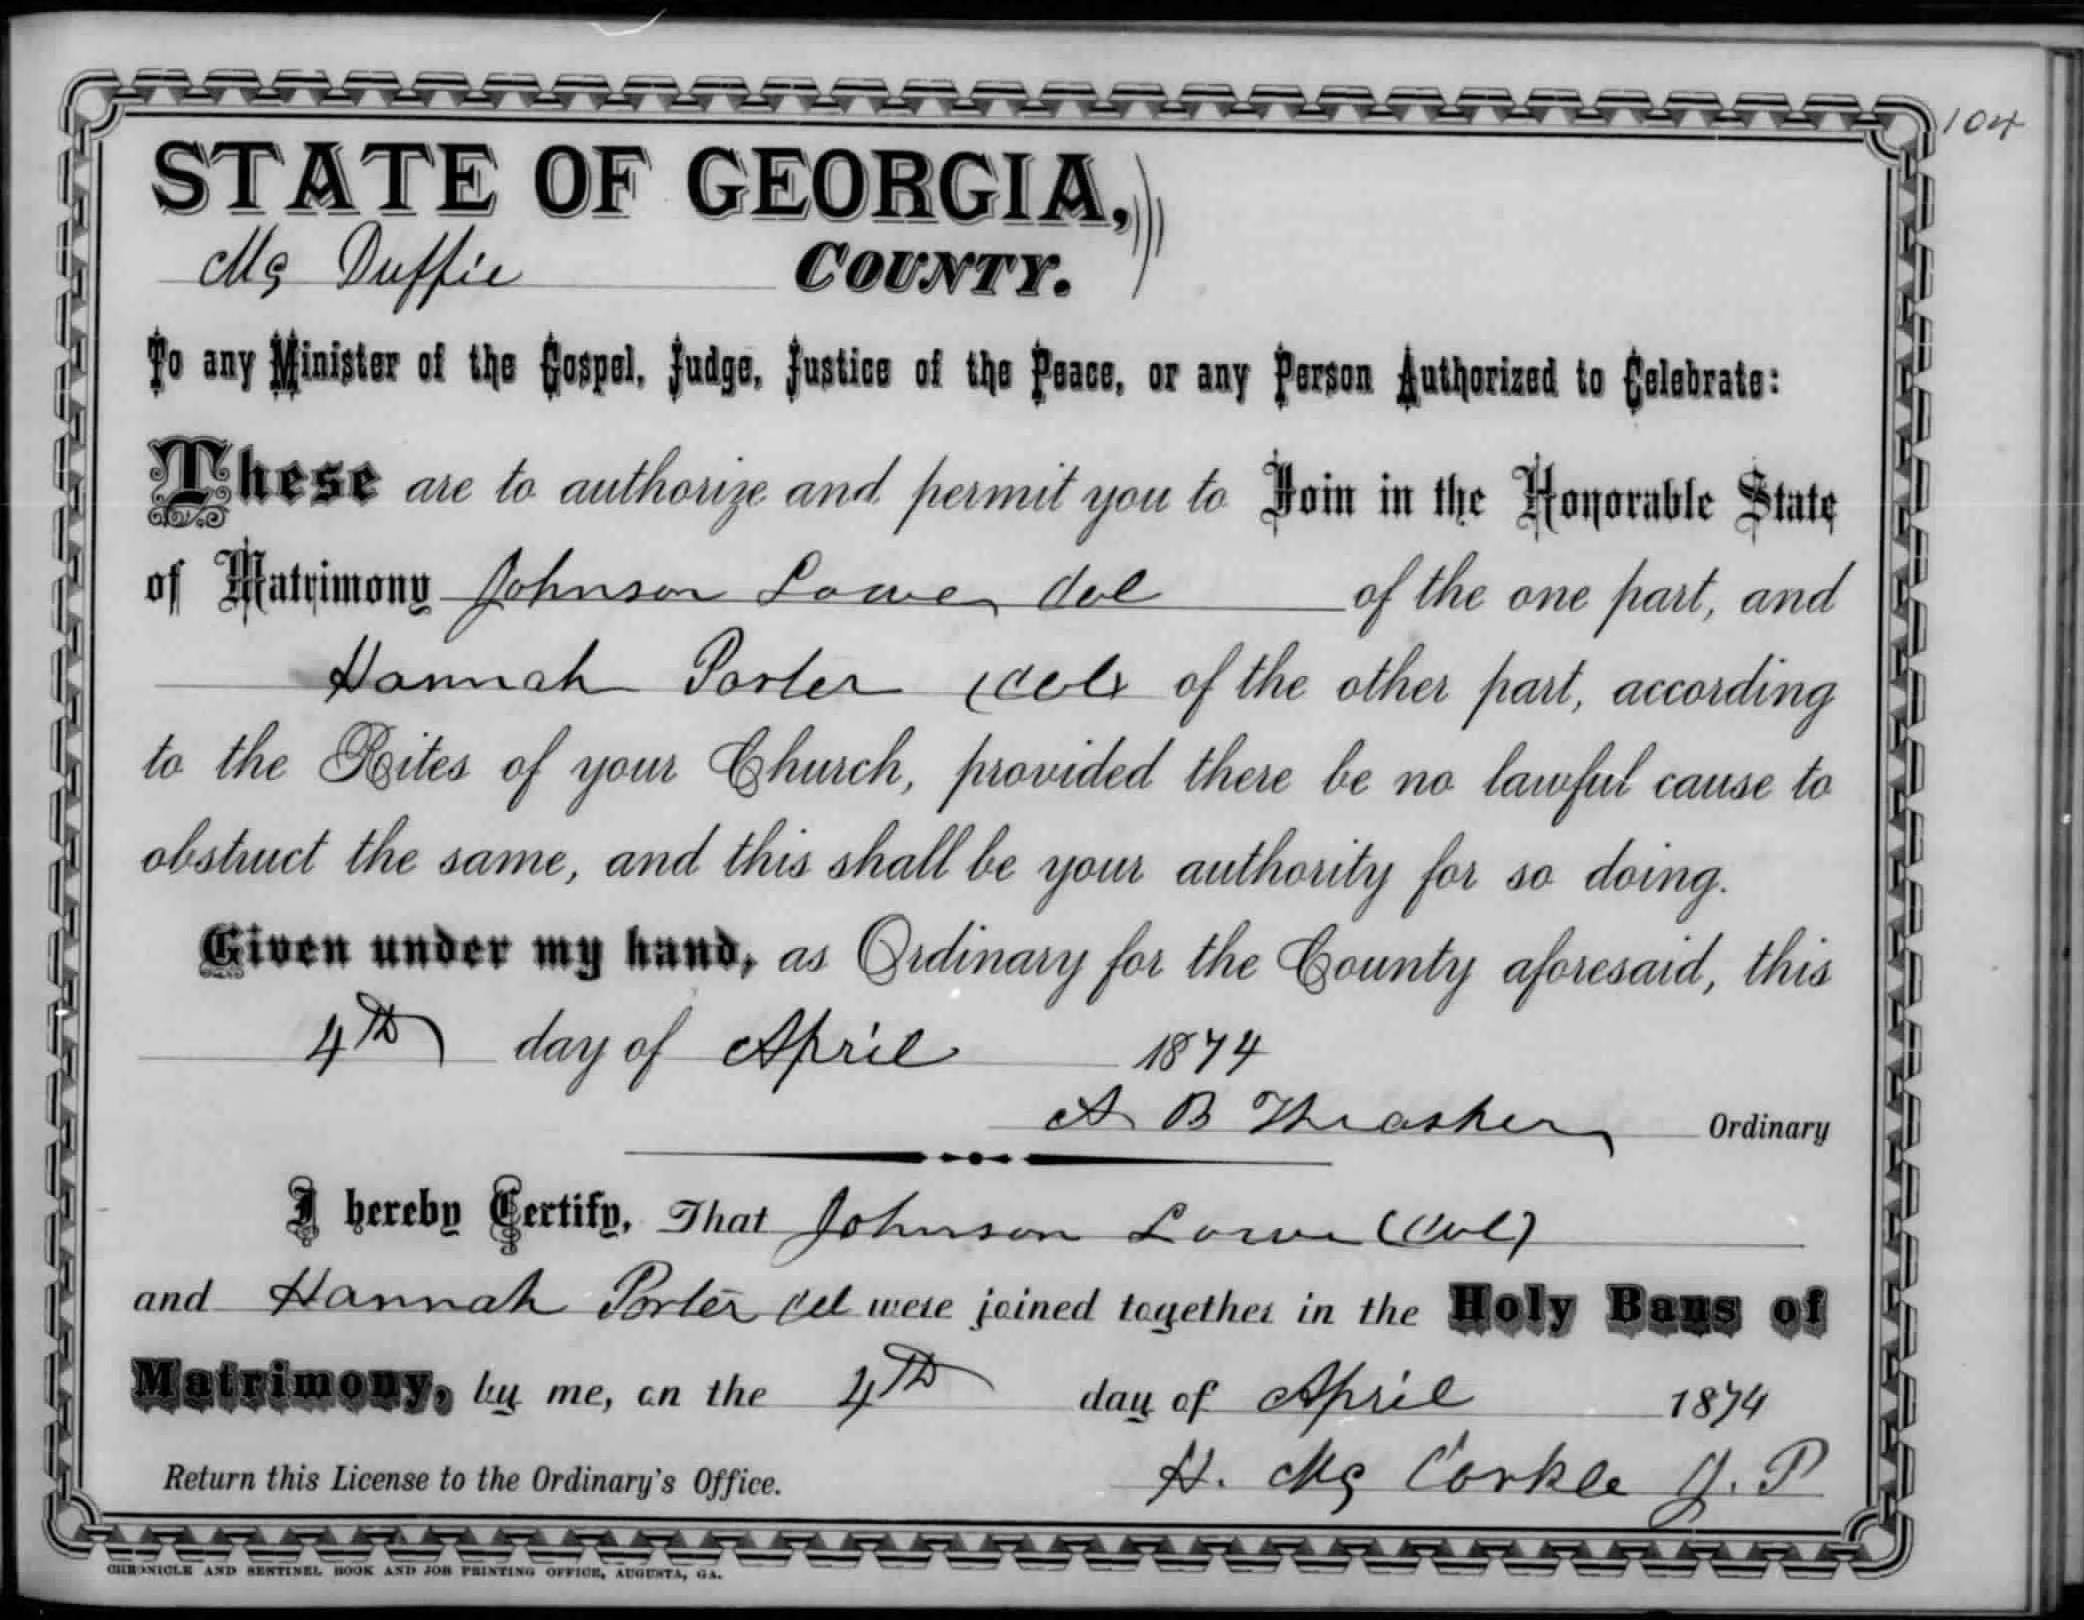 104
STATE OF GEORGIA,
Mc Duffie COUNTY.
To any Minister of the Gospel, Judge, Justice of the Peace, or any Person Authorized to Celebrate:
These are to authorize and permit you to Join in the Honorable State
of Matrimony Johnson Lowe, Col of the one part, and
Hannah Porter (Col) of the other part, according
to the Rites of your Church, provided there be no lawful cause to
obstruct the same, and this shall be your authority for so doing.
Given under my hand, as Ordinary for the County aforesaid, this
4th day of April 1874
A B Thrasher Ordinary
I hereby Certify, That Johnson Lowe (Col)
and Hannah Porter Col were joined together in the Holy Bans of
Matrimony, by me, on the 4th day of April 1874
Return this License to the Ordinary's Office. H. Mc Corkle J. P
CHRONICLE AND SENTINEL BOOK AND JOB PRINTING OFFICE, AUGUSTA, GA.